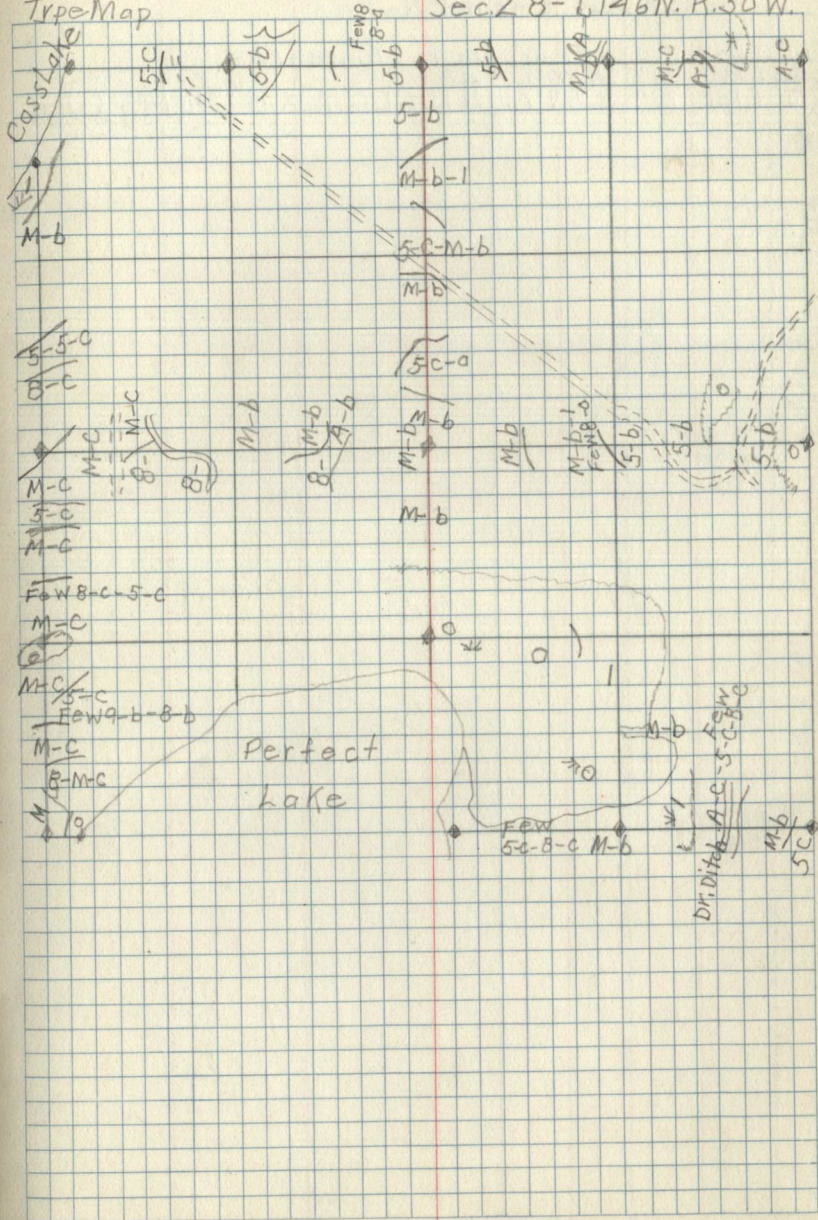 Type Map Sec. 28-T146N. R.30W.
Cass Lake
5-C
5-b
Few 8
8-a
5-b
5-b
M-b
A-C
M-C
A-9
A-C
5-b
M-b-1
M-b
5-C-M-b
M-b
5-5-C
8-C
5-C-a
M-b
M-C
M-C
8-
8-
M-b
M-b
8-
A-b
M-b
M-b
M-b-1
Few 8-b
5-b
5-b
0
5-b
0
M-C
5-C
M-C
M-b
Few 8-C-5-C
M-C
0
0
M-C
5-C
Few 9-b-8-b
M-C
8-M-C
M
Perfect
Lake
0
M-b
Few
5-C-8-C M-b
Dr. Ditch A-C-5-C-8-C
Few
M-b
5C